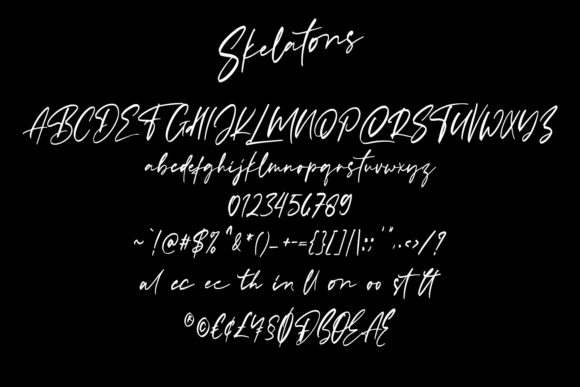 Skelatons
ABCDEFGHIJKLMNOPQRSTUVWXYZ
abcdefghijklmnopqrstuvwxyz
0123456789
~`!@#$%^&*()_+-={}[]|\:;'",.<>/?
al ec ee th in ll on oo st tt
®©€¢£¥§ØÐBŒÆ